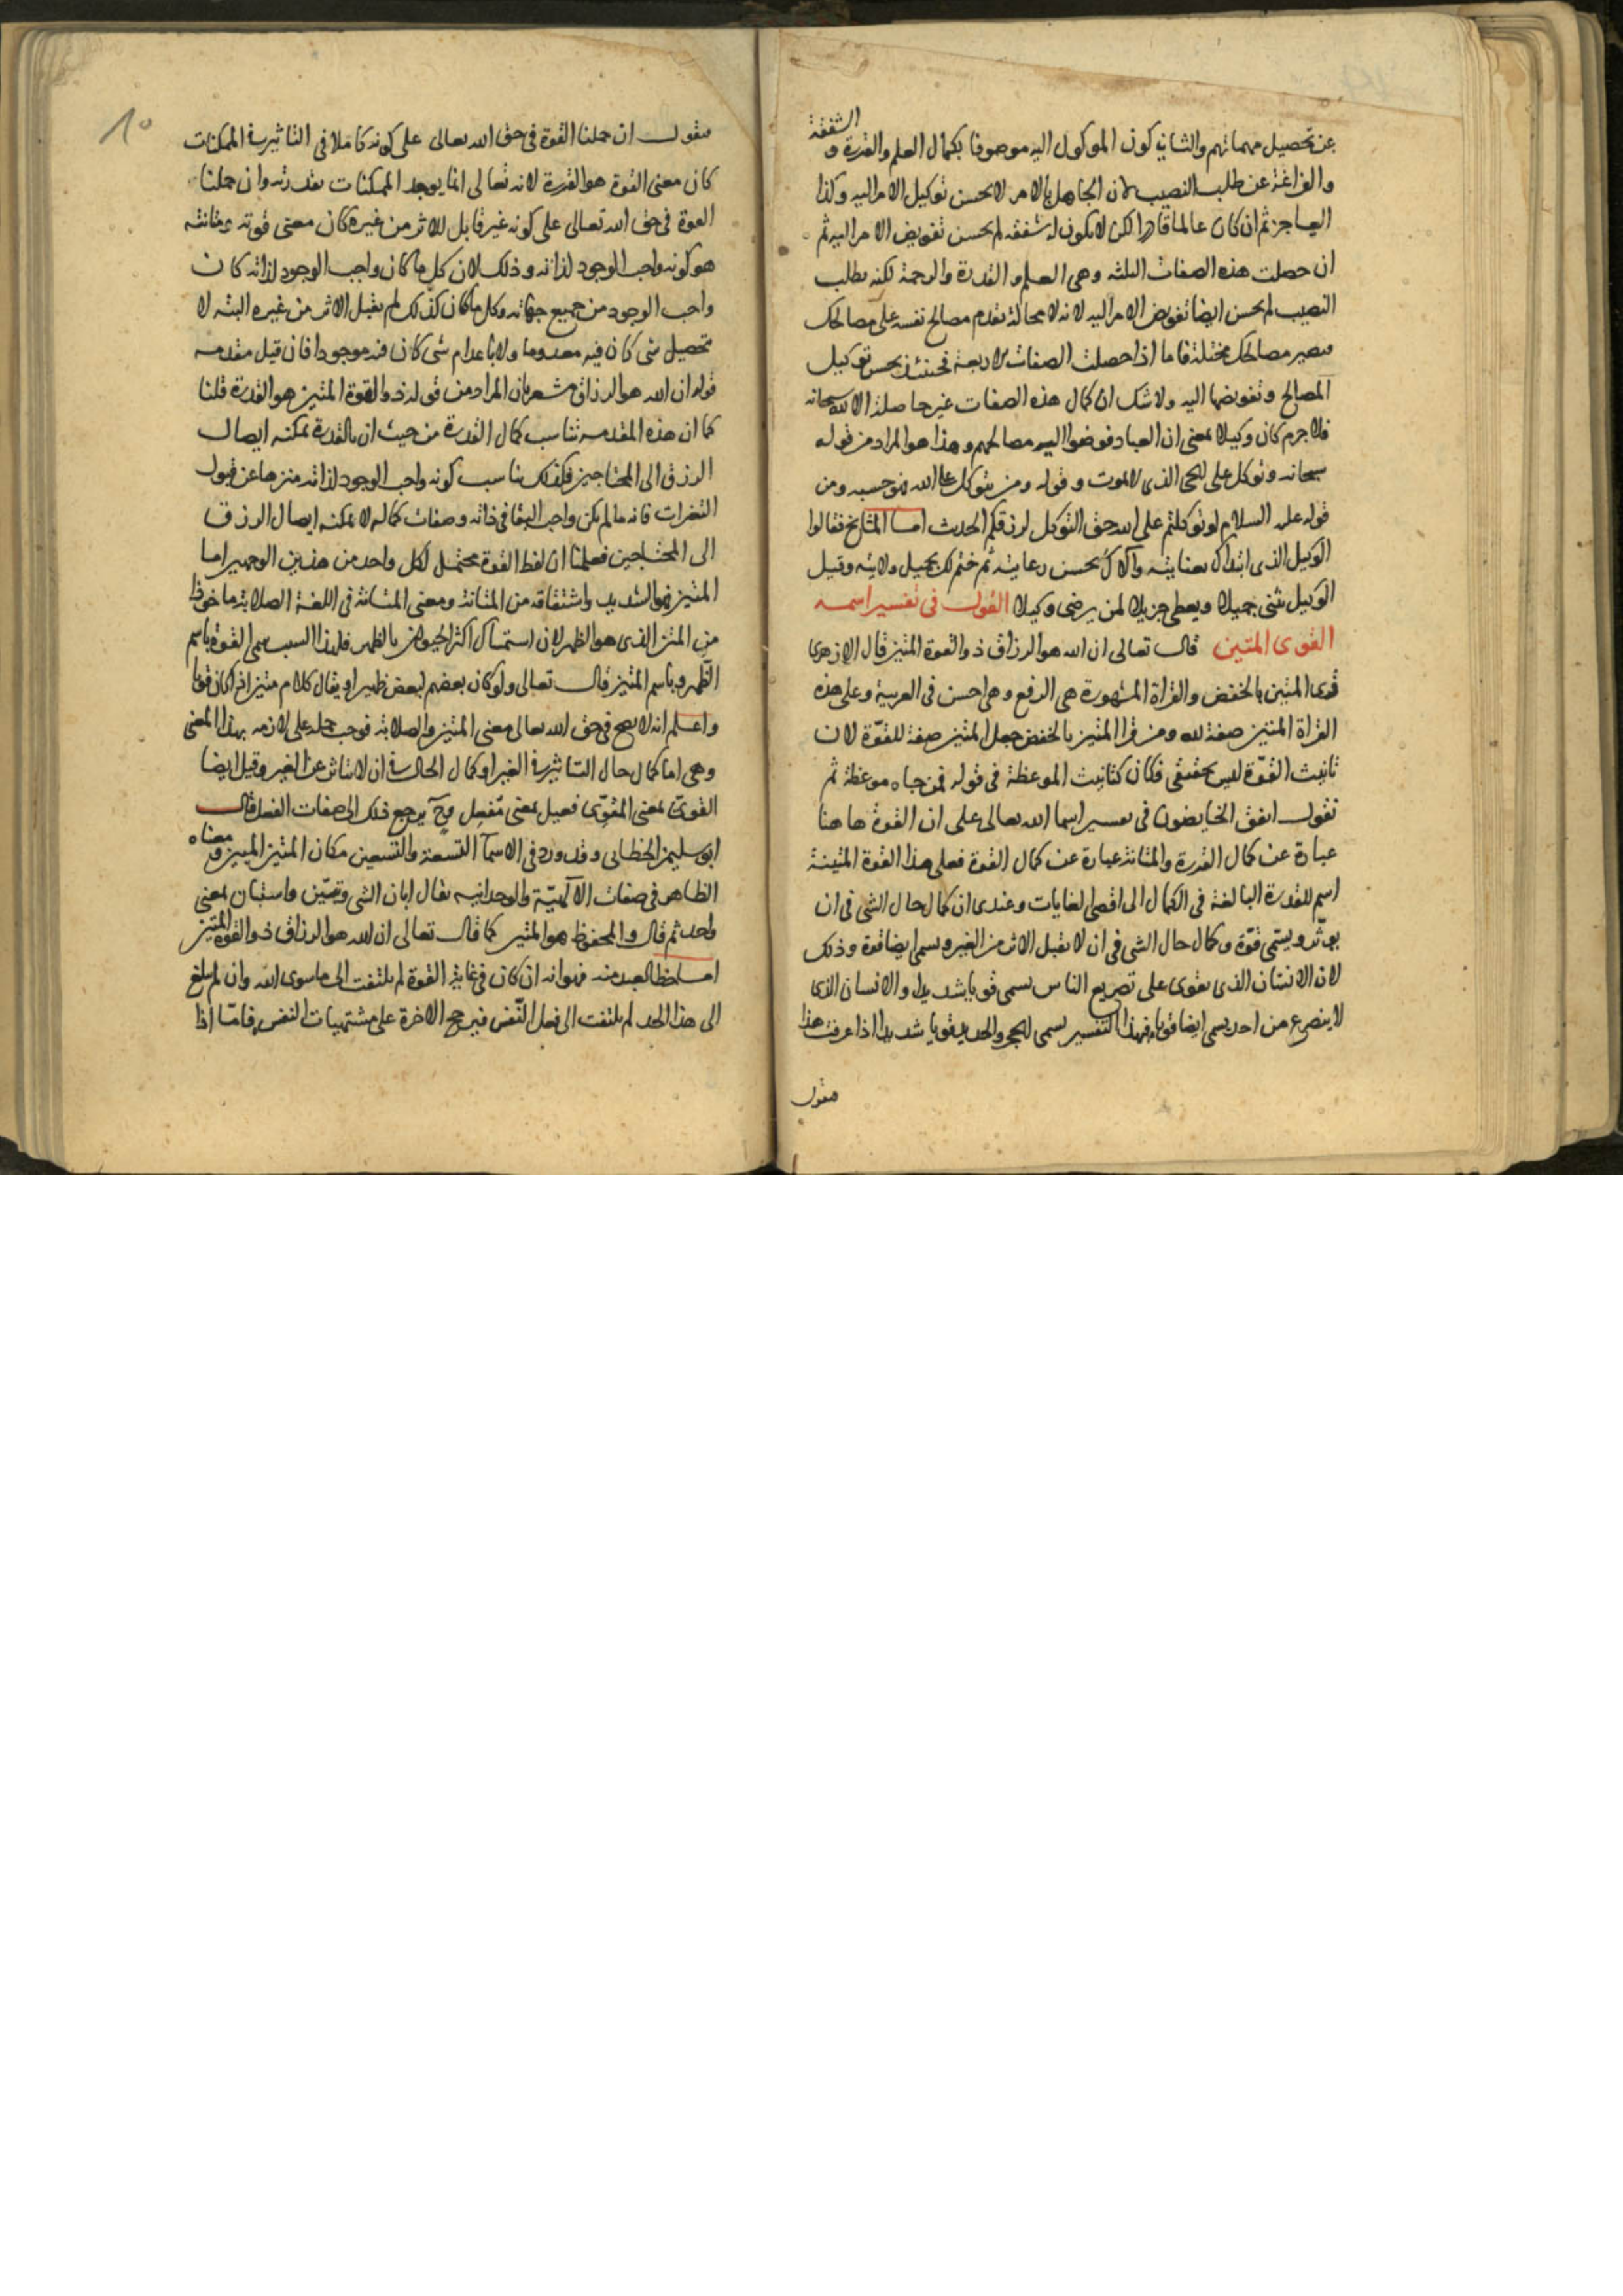 الشفقة
عن تحصيل مهماتهم والثاني كون الموكول اليه موصوفا بكمال العلم والقدرة و
والفراغة عن طلب النصيب لان الجاهل بالامر لا يحسن توكيل الامر اليه وكذا
العاجز ثم ان كان عالما قادرا لكن لا يكون له شفقه لم يحسن تفويض الامر اليه ثم
ان حصلت هذه الصفات الثلثه وهي العلم والقدرة والرحمة لكنه يطلب
النصيب لم يحسن ايضا تفويض الامر اليه لانه لا محالة يقدم مصالح نفسه على مصالحك
فيصير مصالحك مختلة فاما اذا حصلت الصفات الاربعة فحينئذ يحسن توكيل
المصالح وتفويضها اليه ولا شك ان كمال هذه الصفات غير حاصلة الا لله سبحانه
فلا جرم كان وكيلا بمعنى ان العباد فوضوا اليه مصالحهم وهذا هو المراد من قوله
سبحانه وتوكل على الحي الذي لا يموت وقوله ومن يتوكل على الله فهو حسبه ومن
قوله عليه السلام لو توكلتم على الله حق التوكل لرزقكم الحديث اما المشايخ فقالوا
الوكيل الذي ابتداك بعنايته والاك بحسن رعايته ثم ختم لك بجميل ولايته وقيل
الوكيل يثني جميلا ويعطي جزيلا لمن يرضى وكيلا القول في تفسير اسمه
القوى المتين قال تعالى ان الله هو الرزاق ذو القوة المتين قال الازهرى
قرى المتين بالخفض والقراة المشهورة هي الرفع وهي احسن في العربية وعلى هذه
القراة المتين صفة لله ومن قرا المتين بالخفض جعل المتين صفة للقوّة لان
تانيث القوّة ليس بحقيقي فكان كتانيث الموعظة في قوله فمن جاه موعظة ثم
نقول اتفق الخايضون في تفسير اسما الله تعالى على ان القوة هاهنا
عبارة عن كمال القدرة والمتانة عبارة عن كمال القوة فعلى هذا القوة المتينة
اسم للقدرة البالغة في الكمال الى اقصى الغايات وعندى ان كمال حال الشي في ان
يوثّر ويسمّى قوّة وكمال حال الشي في ان لا يقبل الاثر من الغير ويسمى ايضا قوة وذلك
لان الانسان الذى يقوى على تصريع الناس يسمى قويا شديدا والانسان الذى
لا ينصرع من احد يسمى ايضا قويا وبهذا التفسير يسمى الحجر والحديد قويا شديدا اذا عرفت هذا
فنقول
١٥
فنقول ان حملنا القوة في حق الله تعالى على كونه كاملا في التاثير في الممكنات
كان معنى القوة هو القدرة لانه تعالى انما يوجد الممكنات بقدرته وان حملنا
القوة في حق الله تعالى على كونه غير قابل للاثر من غيره كان معنى قوته ومتانته
هو كونه واجب الوجود لذاته وذلك لان كل ما كان واجب الوجود لذاته كان
واجب الوجود من جميع جهاته وكل ما كان كذلك لم يقبل الاثر من غيره البته لا
بتحصيل شي كان فيه معدوما ولا باعدام شي كان فيه موجودا فان قيل مقدمه
قوله ان الله هو الرزاق مشعر بان المراد من قوله ذو القوة المتين هو القدرة قلنا
كما ان هذه المقدمه تناسب كمال القدرة من حيث ان بالقدرة يمكنه ايصال
الرزق الى المحتاجين فكذلك يناسب كونه واجب الوجود لذاته منزها عن قبول
التغيرات فانه ما لم يكن واجب البقا في ذاته وصفات كماله لا يمكنه ايصال الرزق
الى المحتاجين فعلمنا ان لفظ القوة محتمل لكل واحد من هذين الوجهين اما
المتين فهو الشديد واشتقاقه من المتانة ومعنى المتانة في اللغة الصلابة ماخوذا
من المتن الذى هو الظهر لان استمساك اكثر الحيوان بالظهر فلهذا السبب سمى القوة باسم
الظهر وباسم المتين قال تعالى ولو كان بعضهم لبعض ظهيرا ويقال كلام متين اذا كان قويا
واعلم انه لا يصح في حق الله تعالى معنى المتين والصلابة فوجب حمله على لازمه بهذا المعنى
وهي اما كمال حال التاثير في الغير او كمال الحال في ان لا يتاثر عن الغير وقيل ايضا
القوىّ بمعنى المقوّى فعيل بمعنى مُفعِل وح يرجع ذلك الى صفات الفعل قال
ابو سليمن الخطابي وقد ورد في الاسمآ التسعة والتسعين مكان المتين المبين ومعناه
الظاهر في صفات الالهيّة والوحدانيه يقال ابان الشي وتبيّن واستبان بمعنى
واحد ثم قال والمحفوظ هو المتين كما قال تعالى ان الله هو الرزاق ذو القوة المتين
اما حظ العبد منه فهو انه ان كان في غاية القوة لم يلتفت الى ما سوى الله وان لم يبلغ
الى هذا الحد لم يلتفت الى فعل النفس فيرجح الاخرة على مشتهيات النفس فامّا اذا